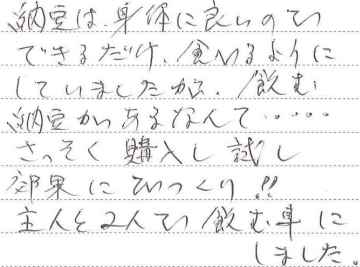 納豆は、身体に良いので
できるだけ、食べるように
していましたが、飲む
納豆があるなんて・・・・・
さっそく購入し試し
効果にびっくり!!
主人と2人で飲む事に
しました。